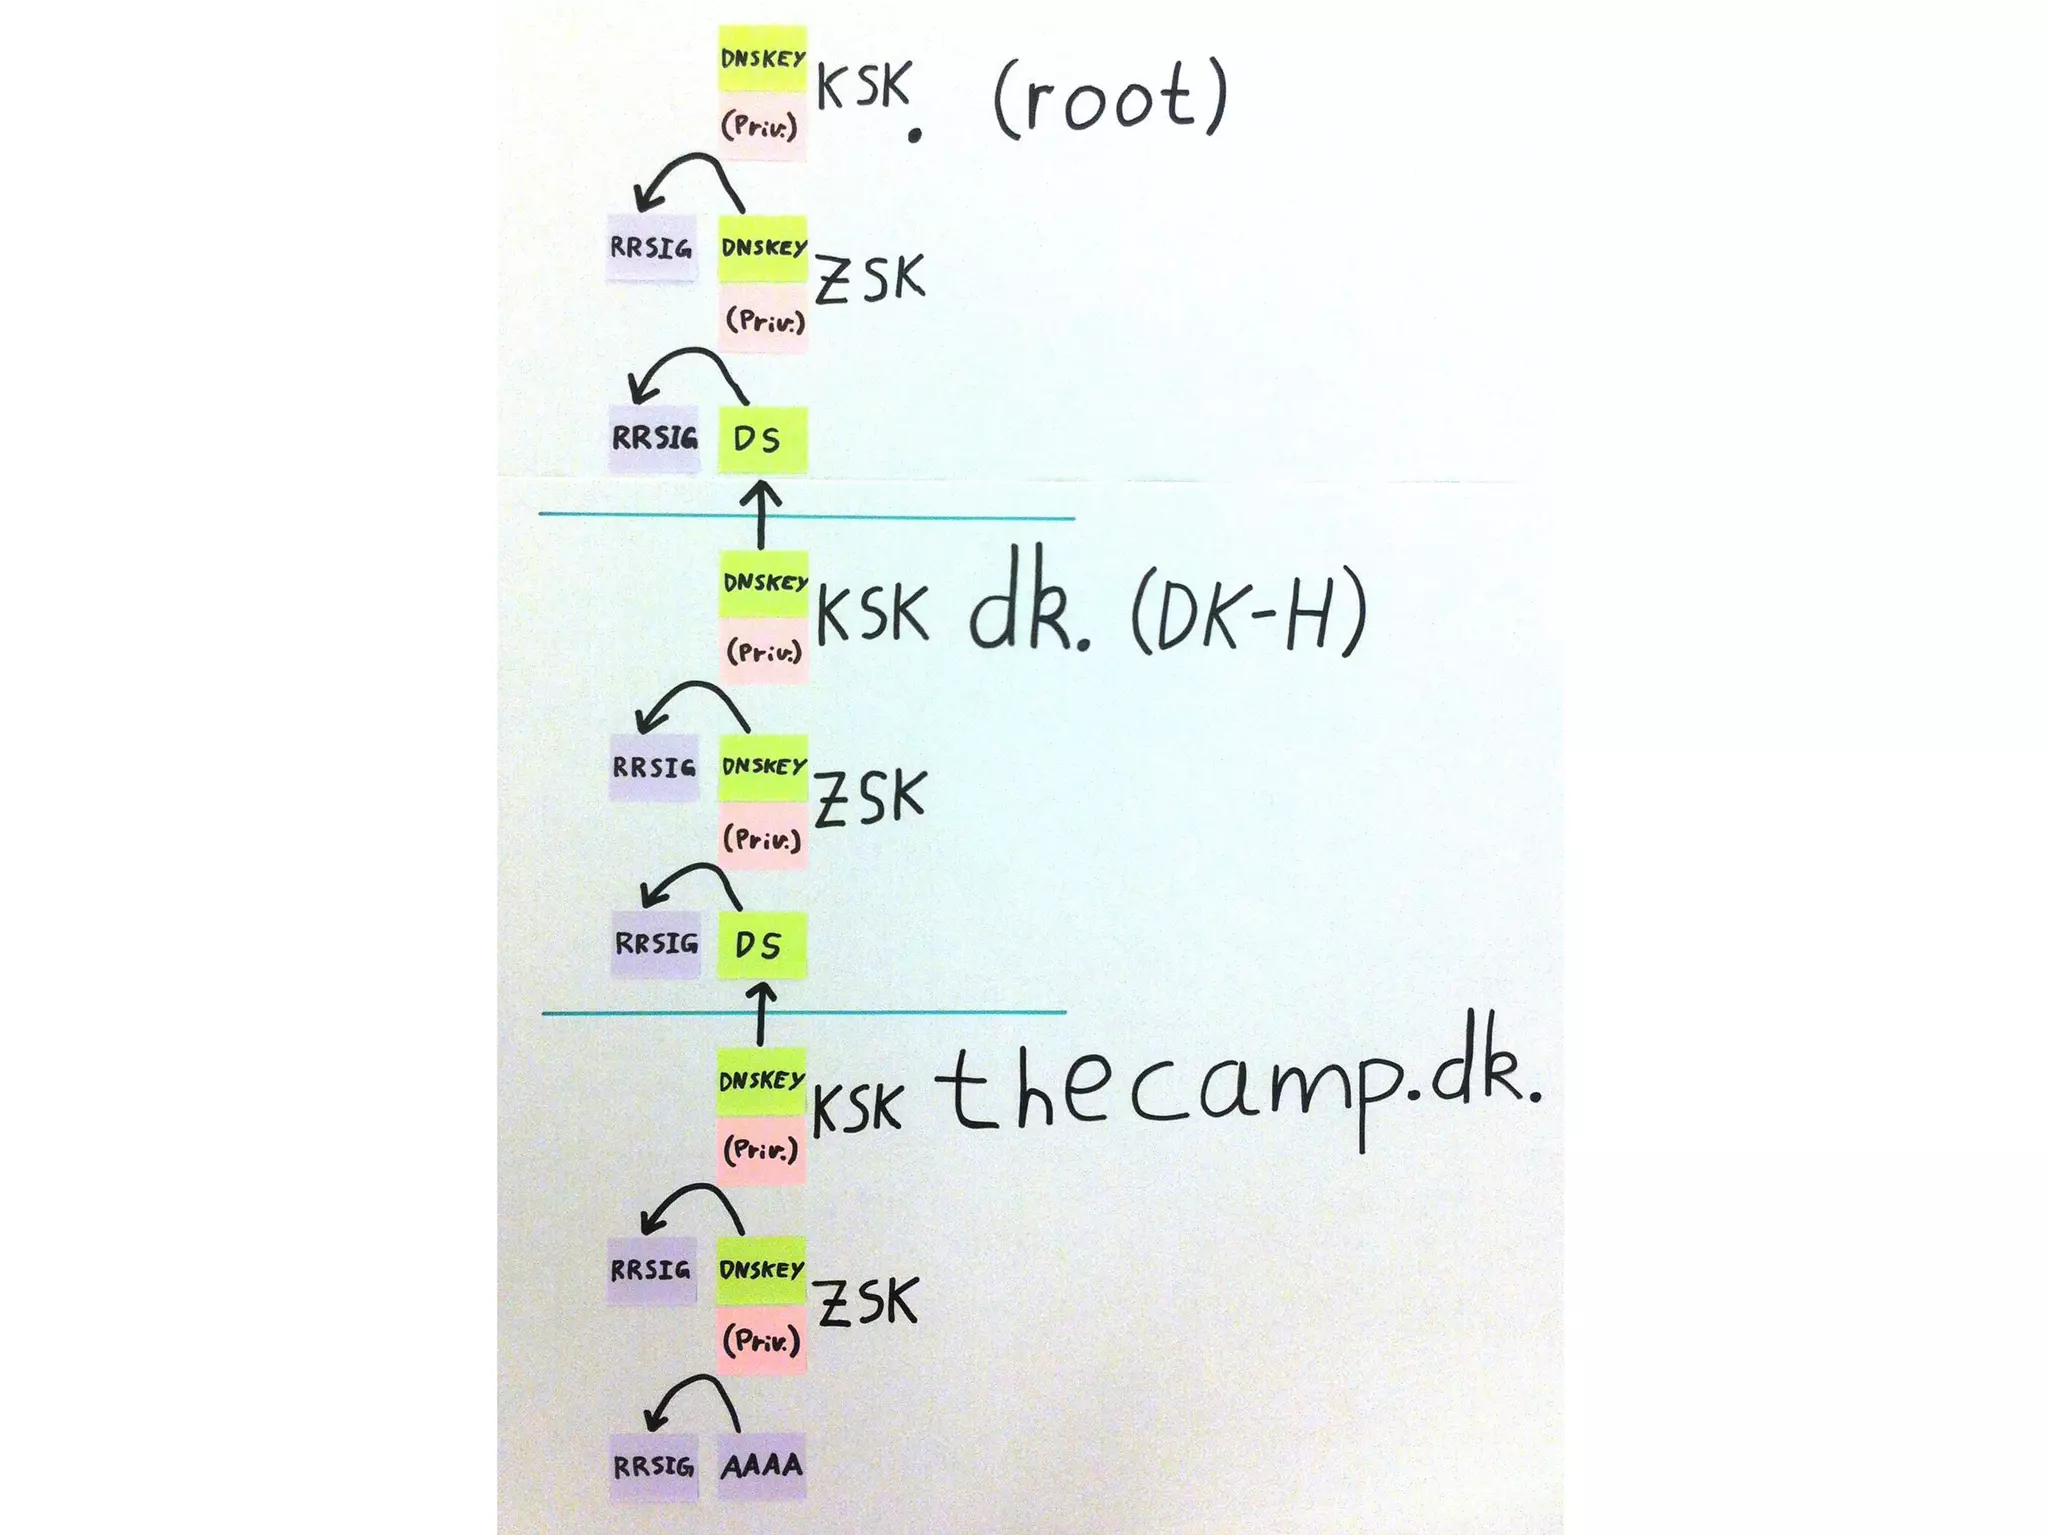 DNSKEY
KSK . (root)
(Priv.)
RRSIG DNSKEY ZSK
(Priv.)
RRSIG DS
DNSKEY KSK dk. (DK-H)
(Priv.)
RRSIG DNSKEY ZSK
(Priv.)
RRSIG DS
DNSKEY KSK thecamp.dk.
(Priv.)
RRSIG DNSKEY ZSK
(Priv.)
RRSIG AAAA